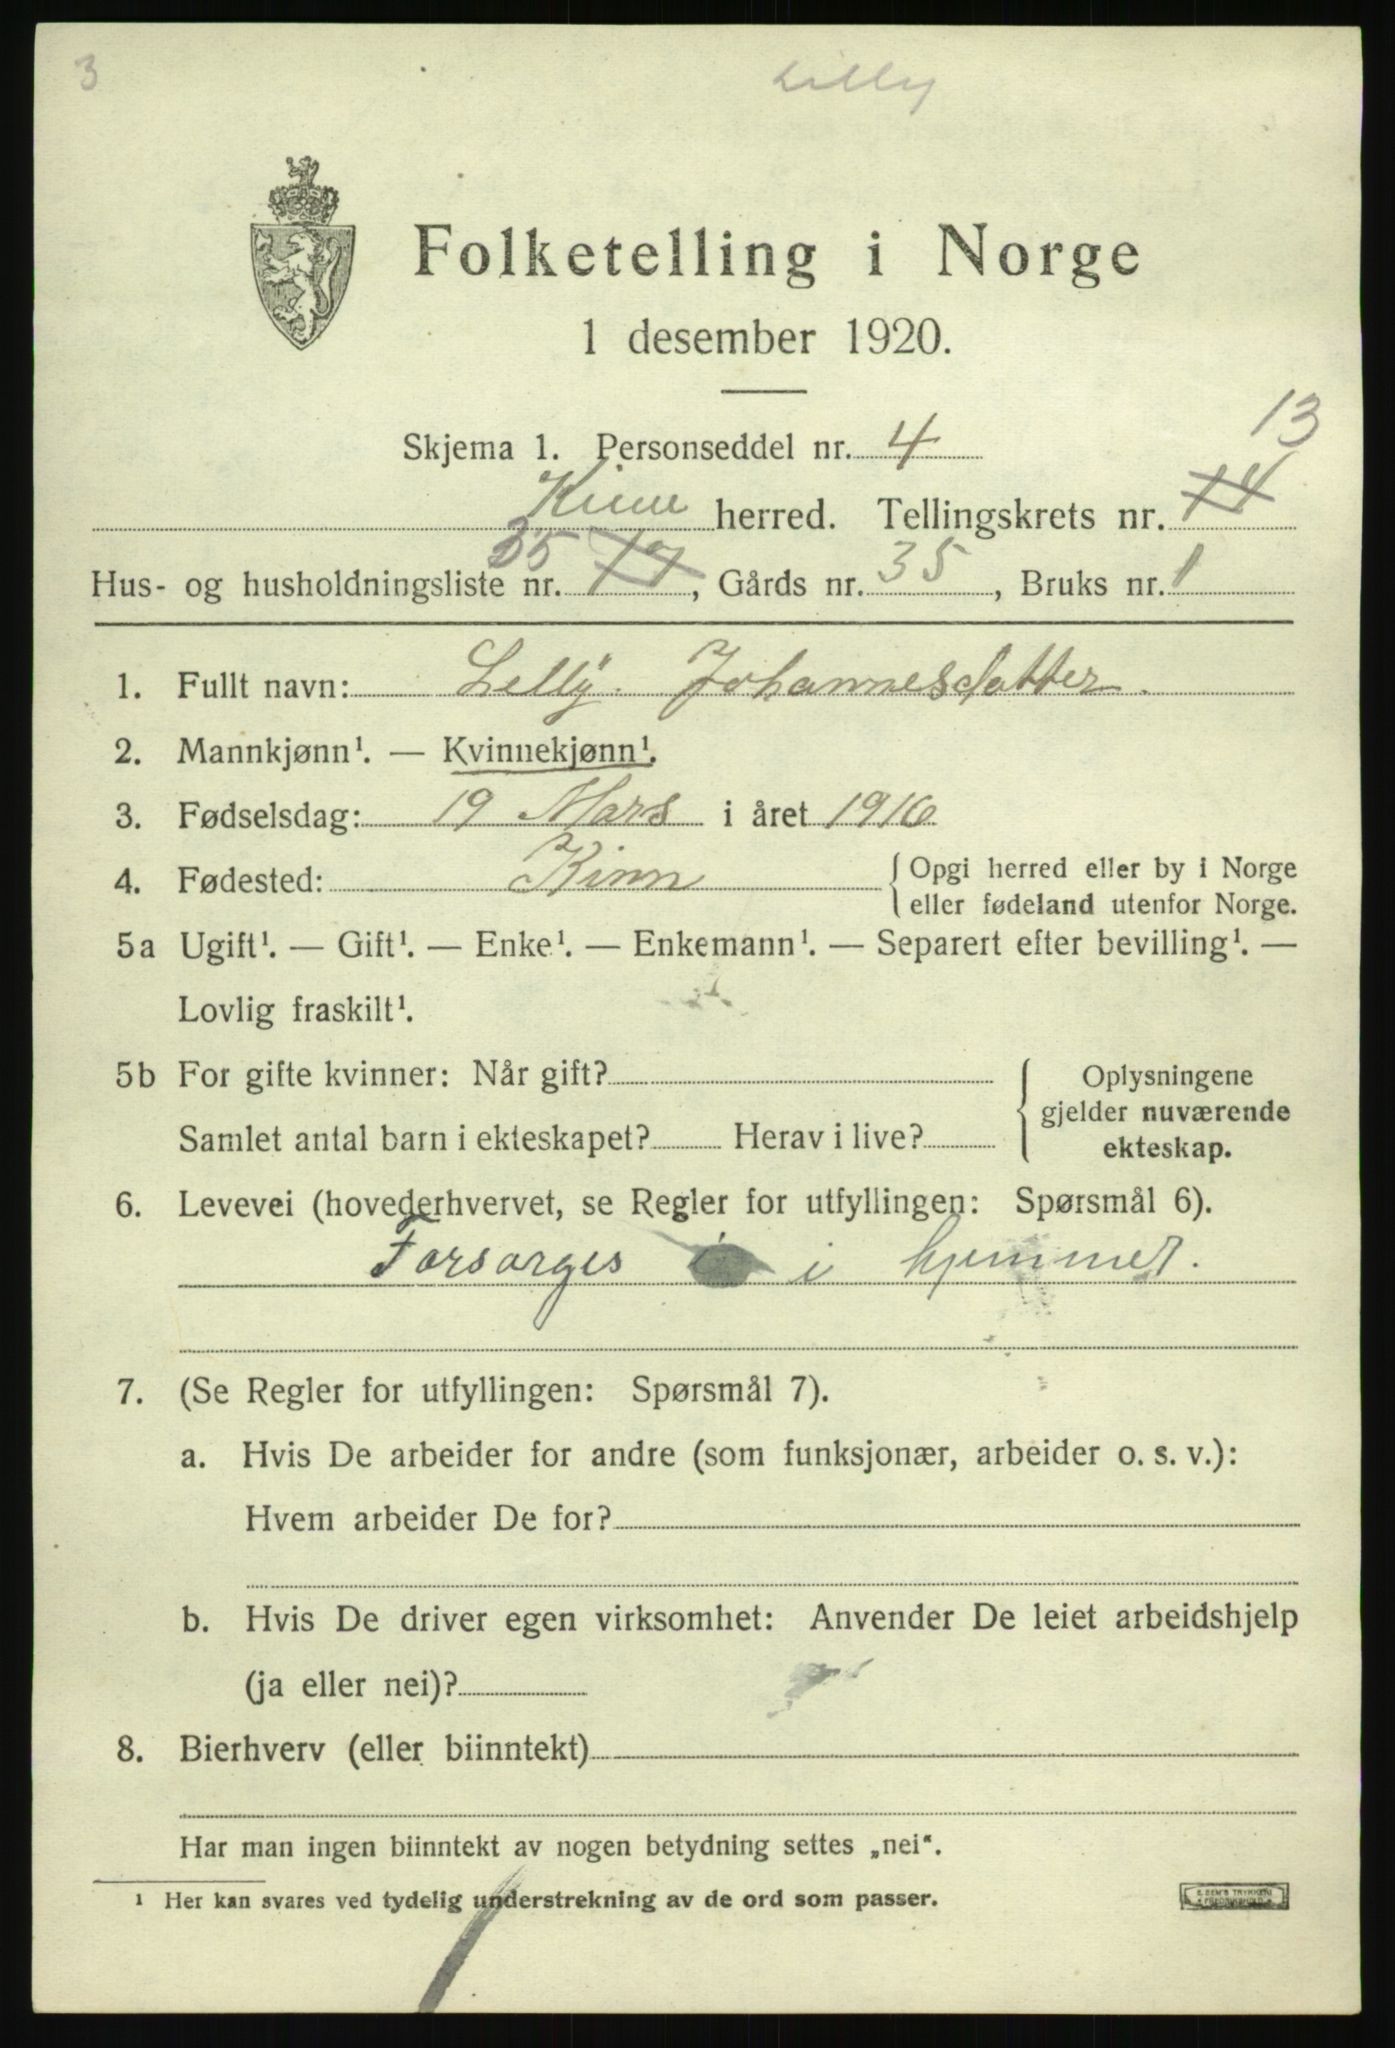 3
Lilly
Folketelling i Norge
1 desember 1920.
13
Skjema 1. Personseddel nr. 4
Kinn herred. Tellingskrets nr. 14
Hus- og husholdningsliste nr. 35, Gårds nr. 35, Bruks nr. 1
1. Fullt navn: Lelly. Johannesdatter.
2. Mannkjønn¹. — Kvinnekjønn¹.
3. Fødselsdag: 19 Mars i året 1916
4. Fødested: Kinn { Opgi herred eller by i Norge
eller fødeland utenfor Norge.
5a Ugift¹. — Gift¹. — Enke¹. — Enkemann¹. — Separert efter bevilling¹. —
Lovlig fraskilt¹.
5b For gifte kvinner: Når gift? { Oplysningene
gjelder nuværende
Samlet antal barn i ekteskapet? Herav i live? ekteskap.
6. Levevei (hovederhvervet, se Regler for utfyllingen: Spørsmål 6).
Forsørges i hjemmet.
7. (Se Regler for utfyllingen: Spørsmål 7).
a. Hvis De arbeider for andre (som funksjonær, arbeider o. s. v.):
Hvem arbeider De for?
b. Hvis De driver egen virksomhet: Anvender De leiet arbeidshjelp
(ja eller nei)?
8. Bierhverv (eller biinntekt)
Har man ingen biinntekt av nogen betydning settes „nei“.
¹ Her kan svares ved tydelig understrekning av de ord som passer.